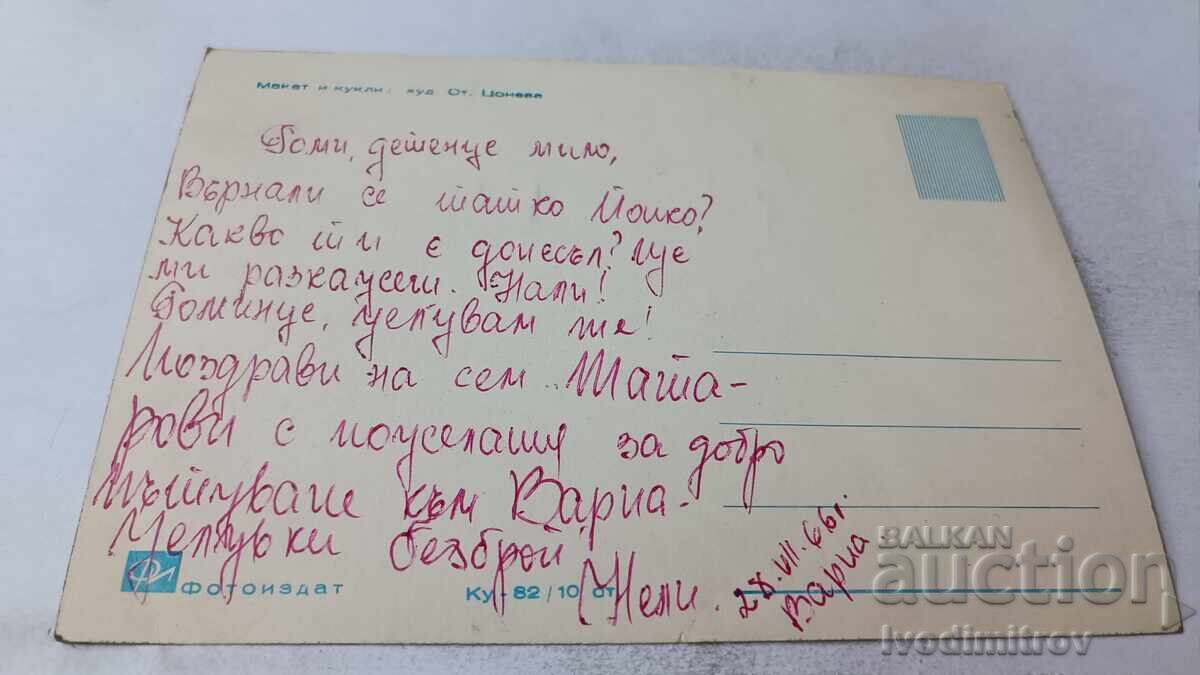 Макет и кукли: худ. От. Цонева
Томи, детенце мило,
Върнали се татко Йошко?
Какво ти е донесъл? Ще
ми разкажеш. Нали!
Томинце, целувам те!
Поздрави на сем. Тата-
рови с пожелания за добро
пътуване към Варна.
Целувки безброй!
Нели.
28.VII.66г.
Варна
Фотоиздат
Ку-82/10 ст.
BALKAN
auction
Ivodimitrov